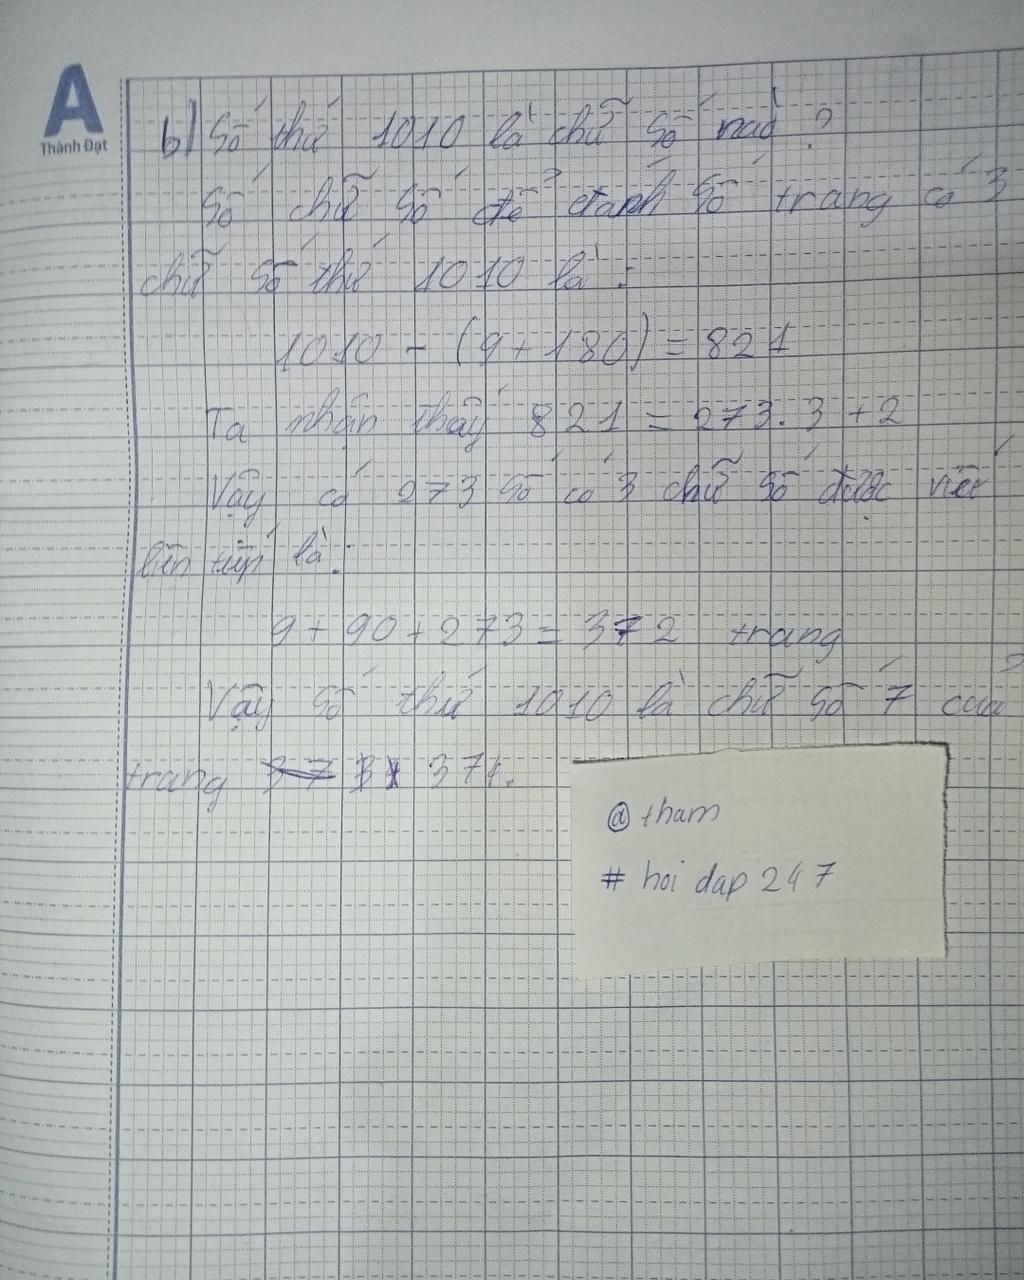 A
Thành Đạt
b) Số thứ 1010 là chữ số nào ?
Số chữ số để đánh số trang có 3
chữ số thứ 1010 là :
1010 - (9 + 180) = 821
Ta nhận thấy 821 = 273.3 + 2
Vậy có 273 số có 3 chữ số được viết
liên tiếp là :
9 + 90 + 273 = 372 trang
Vậy số thứ 1010 là chữ số 7 của
trang 371.
@ tham
# hoi dap 247